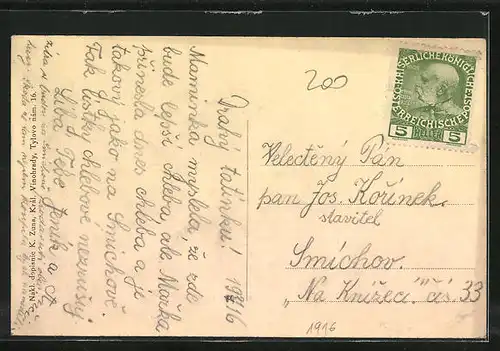 Drahý tatínku! 1916
Maminka myslela, že zde
bude lepší chleba, ale Mařka
přinesla dnes chleba a je
takový jako na Smíchově.
Tak lístky chlebové nezrušuj
Líbá Tebe Jeník a
Nákl. dopisnic K. Zuna, Král. Vinohrady, Tylovo nám. 16.
200
KAISERLICHE KÖNIGLICHE
ÖSTERREICHISCHE POST
5 HELLER 5
Velectěný Pán
pan Jos. Kořínek
stavitel
Smíchov.
„Na Knížecí. čís 33
1916